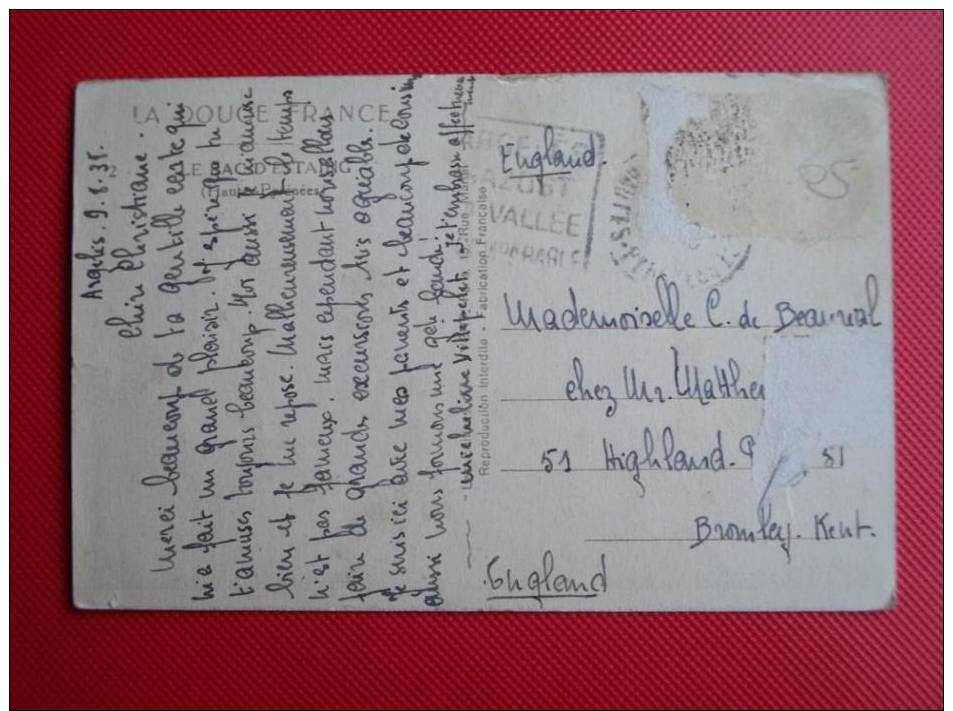 LA DOUCE FRANCE
LE LAC D'ESTAING
Hautes Pyrénées
Argelès. 9.8.38.
Chère Christiane.
Merci beaucoup de ta gentille carte qui
m'a fait un grand plaisir. J'espère que tu
t'amuses toujours beaucoup. Moi aussi je m'amuse
bien et je me repose. Malheureusement le temps
n'est pas fameux, mais cependant nous allons
faire de grandes excursions très agréables.
Je suis ici avec mes parents et beaucoup de cousins
aussi nous formons une gaie bande.
je t'embrasse affectueusement
Reproduction Interdite - Fabrication Française
ARGELÈS
GAZOST
VALLÉE
England.
25
Mademoiselle C. de Beaureal
chez Mr. Matthe
51 Highland. 51
Bromley. Kent.
England